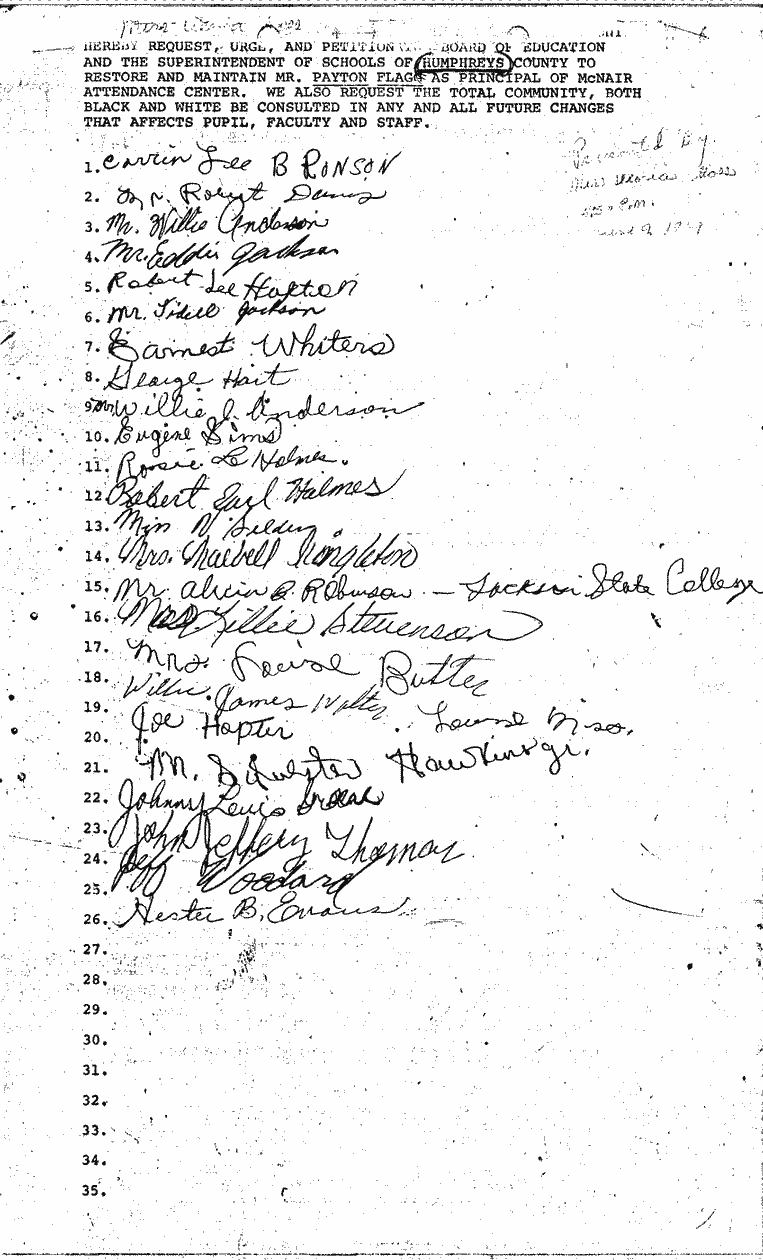 HEREBY REQUEST, URGE, AND PETITION BOARD OF EDUCATION
AND THE SUPERINTENDENT OF SCHOOLS OF HUMPHREYS COUNTY TO
RESTORE AND MAINTAIN MR. PAYTON FLAGG AS PRINCIPAL OF McNAIR
ATTENDANCE CENTER. WE ALSO REQUEST THE TOTAL COMMUNITY, BOTH
BLACK AND WHITE BE CONSULTED IN ANY AND ALL FUTURE CHANGES
THAT AFFECTS PUPIL, FACULTY AND STAFF.
Presented By
Moss
P.M.
1. Lee BRONSON
2. Robert
3. Mr. Willie Anderson
4. Mr. Eddie Jackson
5. Robert Lee
6. Mr. Jackson
7. Earnest Whiters
8. George Hart
9. Mr. Willie J. Anderson
10. Eugene Sims
11. Rosie Le Holmes.
12. Robert Earl Holmes
13. Miss
14. Mrs. Maebell Singleton
15. Mr. Robinson - Jackson State College
16. Lillie Stevenson
17. Mrs. Louise Butler
18. Willie James
19. Joe Hopter
20.
21. Hawkins Jr.
22. Johnny Lewis
23. John Jeffery Thomas
24. Jeff Woodard
25.
26. Hester B. Evans
27.
28.
29.
30.
31.
32.
33.
34.
35.